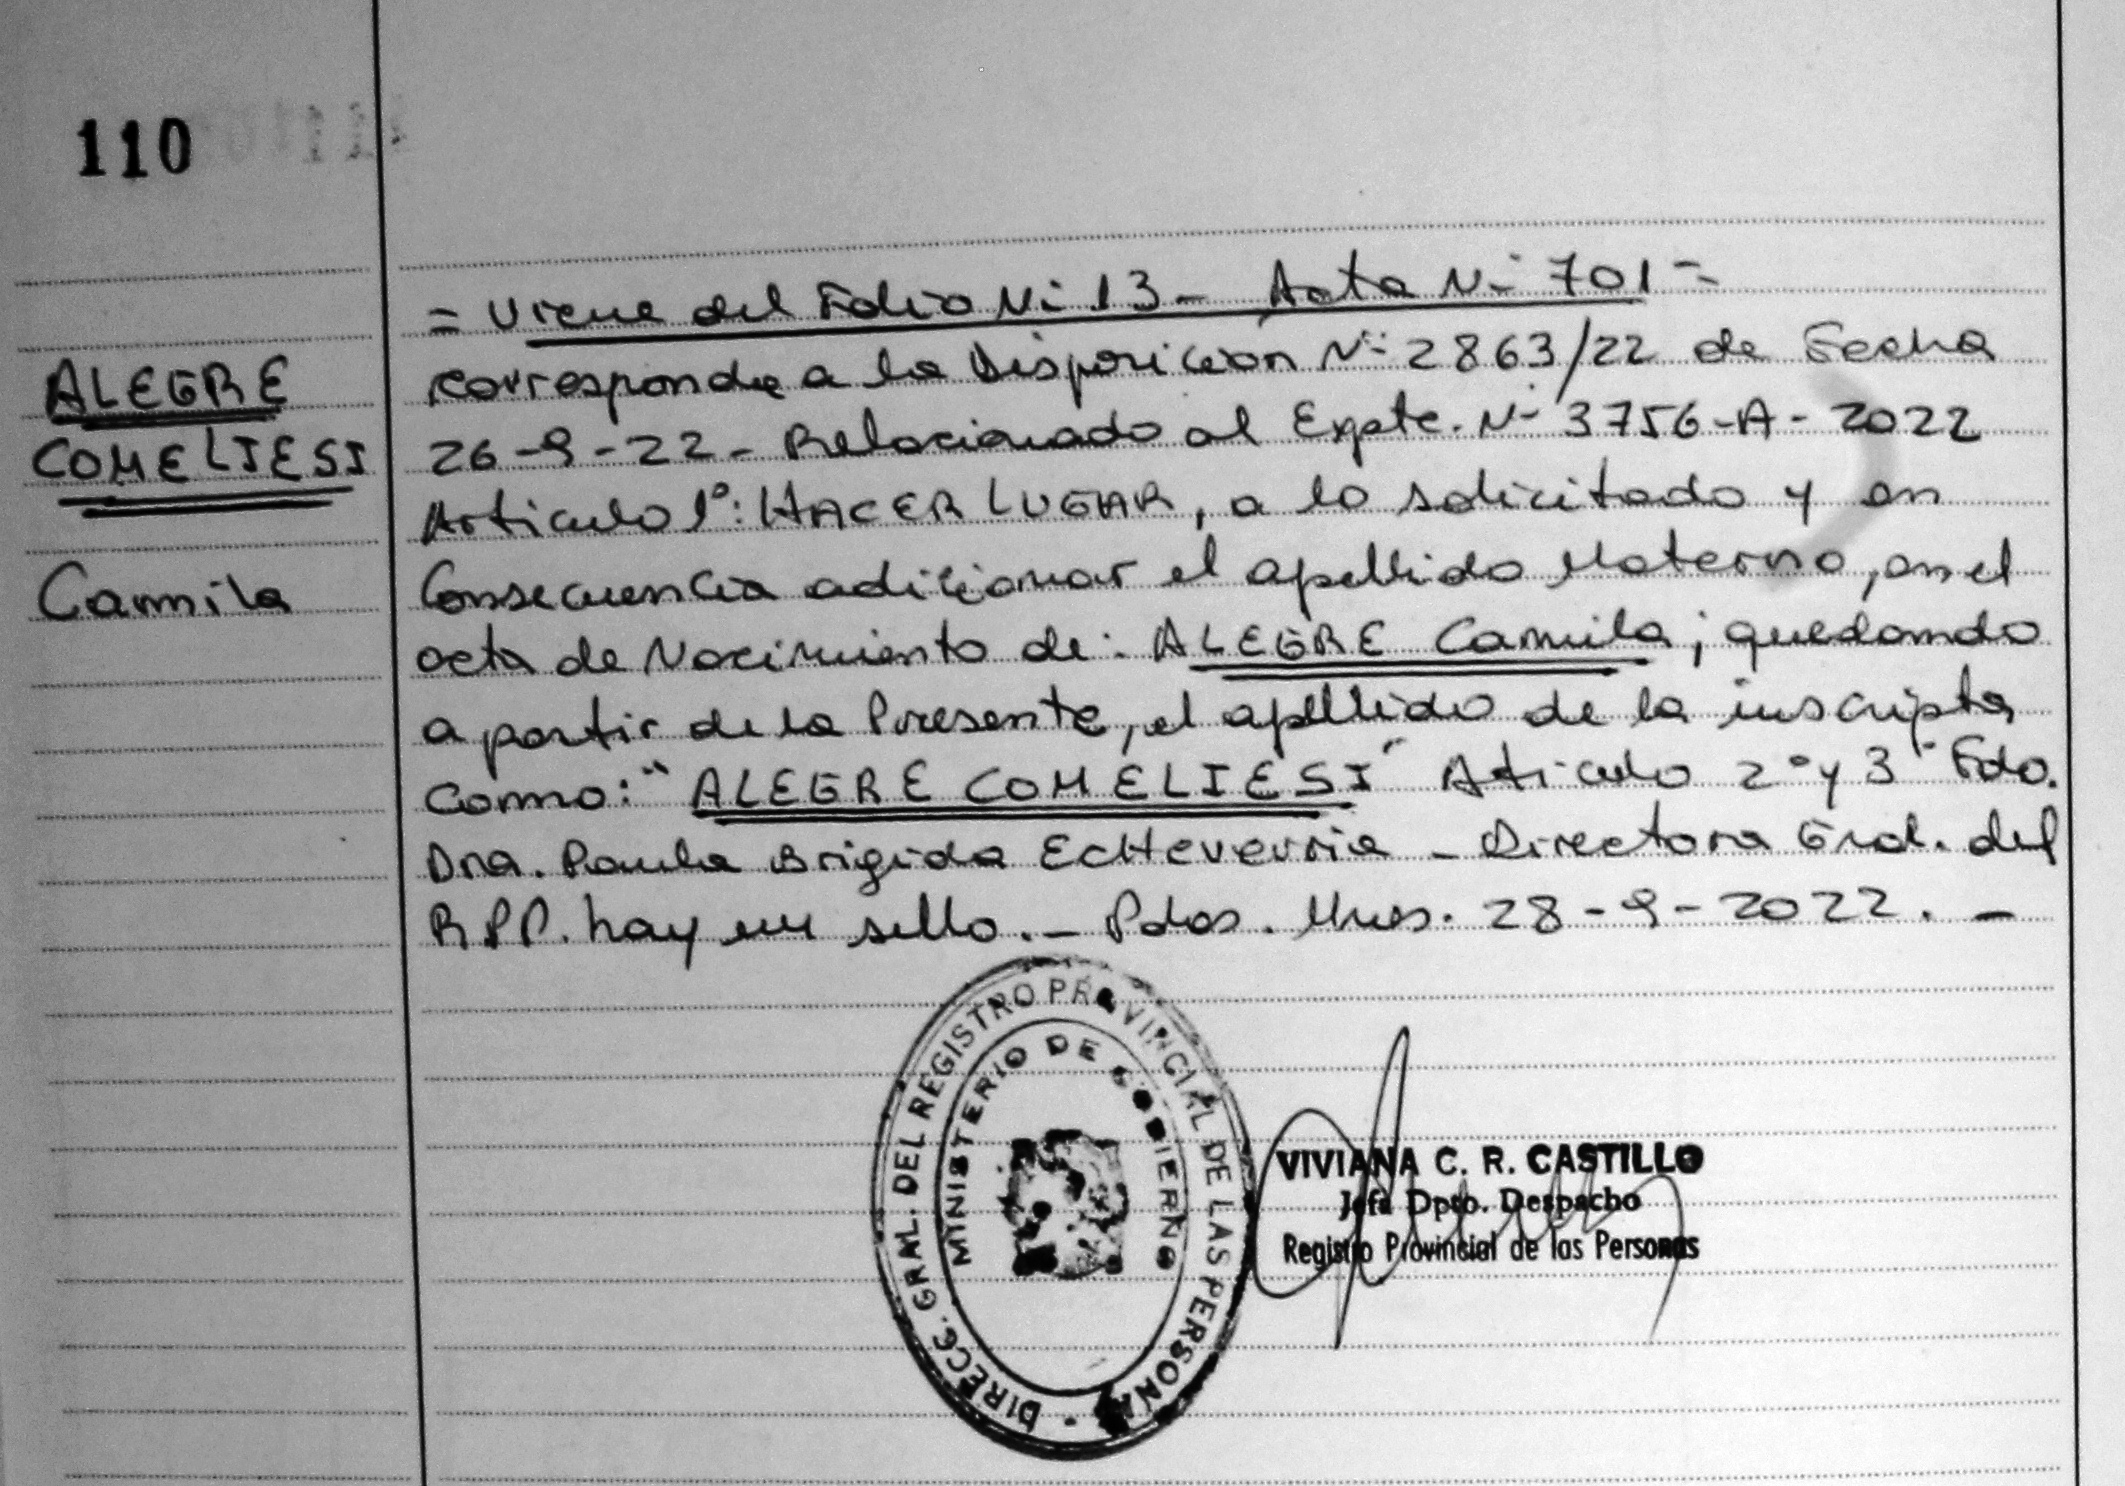 110
= Viene del Folio Nº 13 - Acta Nº 701 =
ALEGRE
COMELIESI
Camila
corresponde a la Disposición Nº 2863/22 de Fecha
26-9-22 - Relacionado al Expte. Nº 3756-A-2022
Articulo 1º: HACER LUGAR, a lo solicitado y en
Consecuencia adicionar el apellido Materno, en el
acta de Nacimiento de: ALEGRE Camila; quedando
a partir de la Presente, el apellido de la inscripta
como: "ALEGRE COMELIESI" Articulo 2º y 3º Fdo.
Dra. Paula Brigida EcHeverria - Directora Gral. del
R.P.P. hay un sello. - Pdas. Mnes. 28-9-2022. -
DIRECC. GRAL. DEL REGISTRO PROVINCIAL DE LAS PERSONAS
MINISTERIO DE GOBIERNO
VIVIANA C. R. CASTILLO
Jefa Dpto. Despacho
Registro Provincial de las Personas